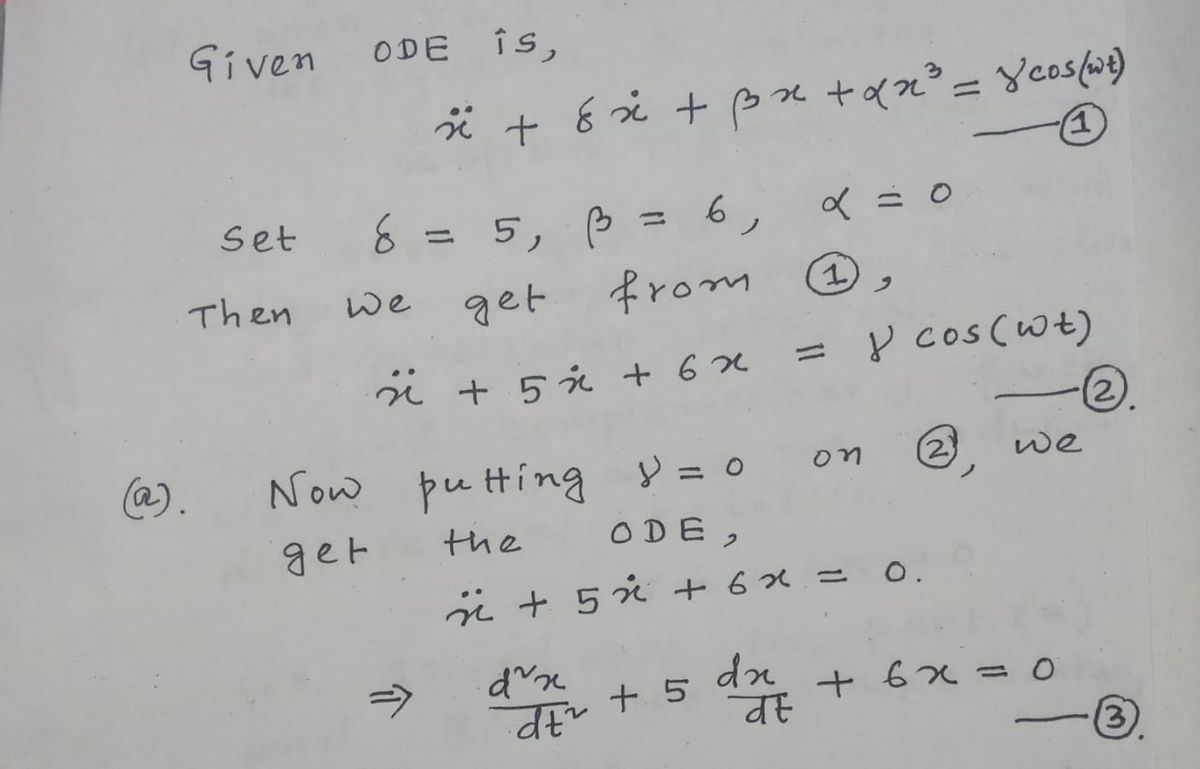 Given ODE is,
ẍ + δẋ + βx + αx³ = γcos(ωt)
—①
Set δ = 5, β = 6, α = 0
Then we get from ①,
ẍ + 5ẋ + 6x = γ cos(ωt)
—②.
(a). Now putting γ = 0 on ②, we
get the ODE,
ẍ + 5ẋ + 6x = 0.
⇒ d²x/dt² + 5 dx/dt + 6x = 0
—③.